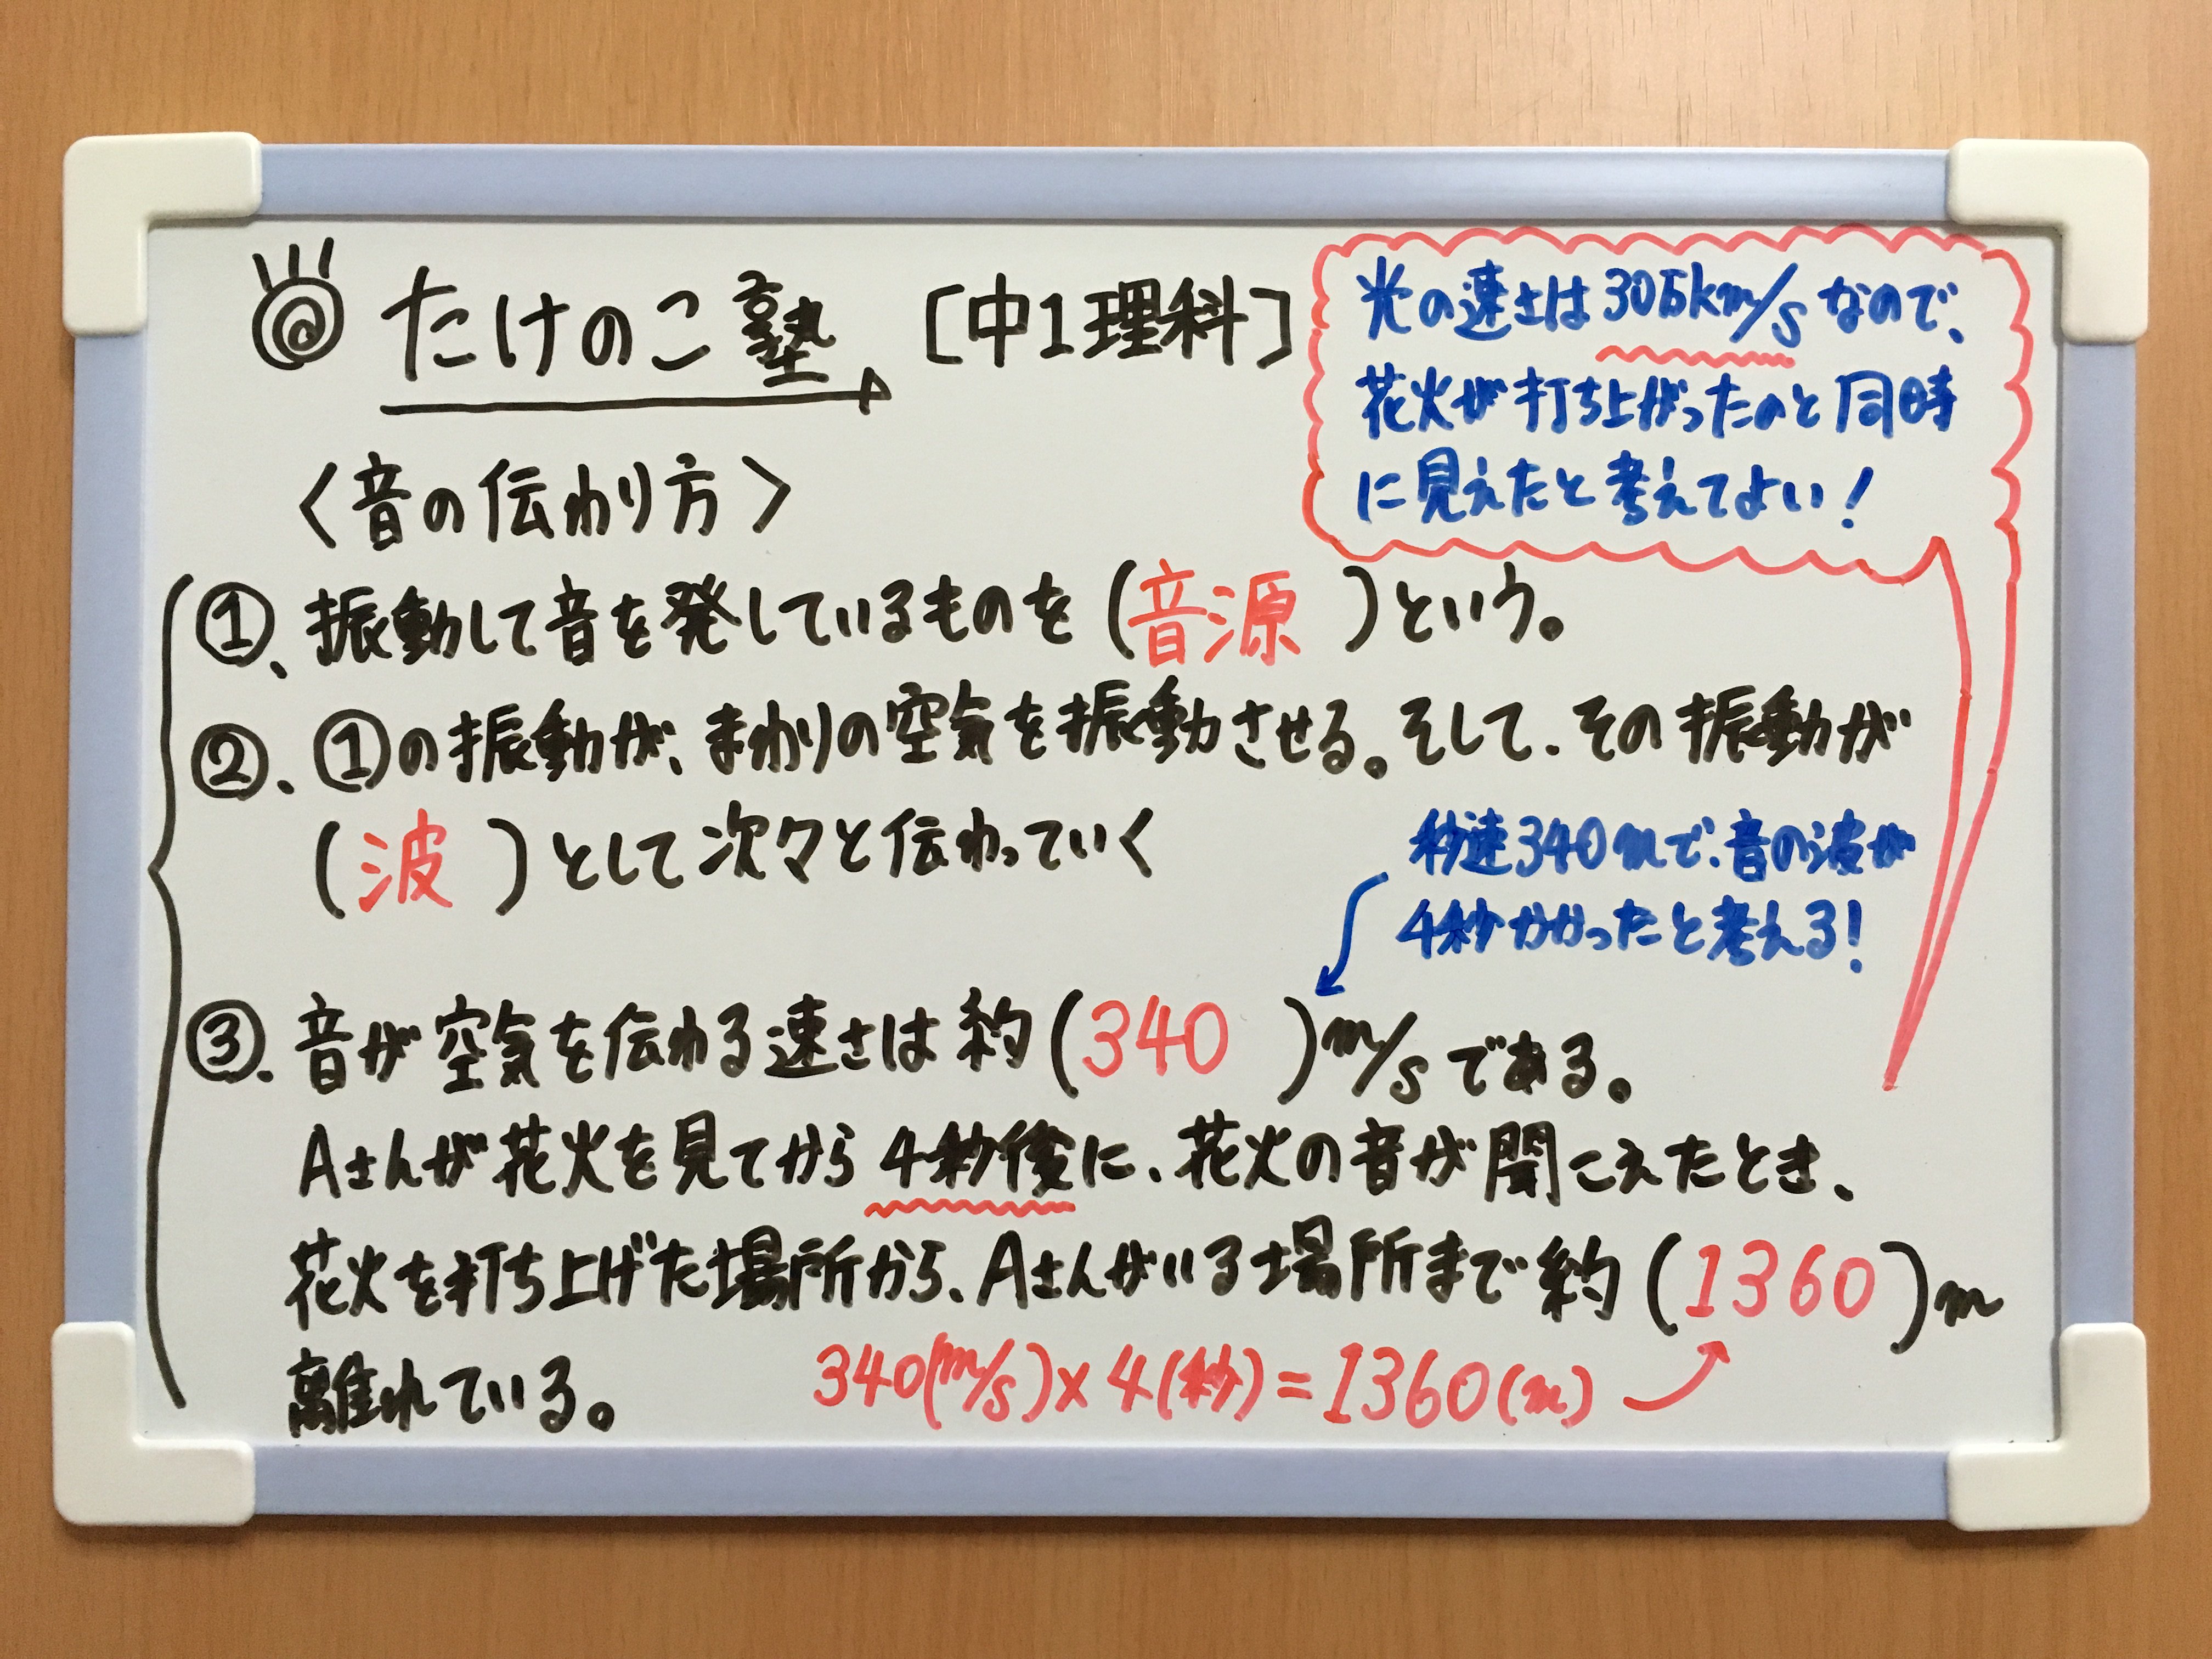 たけのこ塾 [中1理科]
光の速さは30万km/sなので、
花火が打ち上がったのと同時
に見えたと考えてよい!
<音の伝わり方>
①、振動して音を発しているものを(音源)という。
②、①の振動が、まわりの空気を振動させる。そして、その振動が
(波)として次々と伝わっていく
秒速340mで、音の波が
4秒かかったと考える!
③、音が空気を伝わる速さは約(340)m/sである。
Aさんが花火を見てから4秒後に、花火の音が聞こえたとき、
花火を打ち上げた場所から、Aさんがいる場所まで約(1360)m
離れている。
340(m/s)×4(秒)=1360(m)